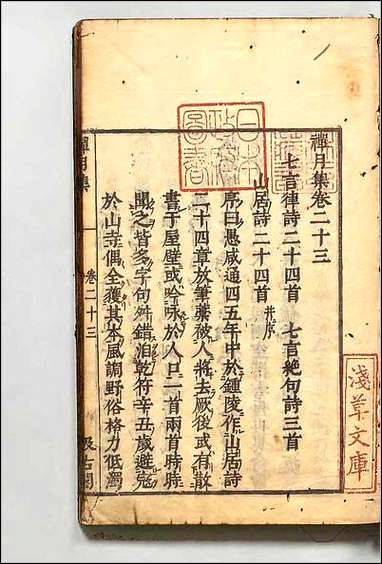 禪月集卷二十三
七言律詩二十四首　七言絶句詩三首
山居詩二十四首 并序
序曰愚咸通四五年中於鍾陵作山居詩
二十四章放筆藁被人將去厥後或有散
書于屋壁或吟咏於人口一首兩首時時
聞之皆多字句舛錯洎乾符辛丑歲避寇
於山寺偶全獲其本風調野俗格力低濁
禪月集
卷二十三
汲古閣
日本
政府
圖書
淺草文庫